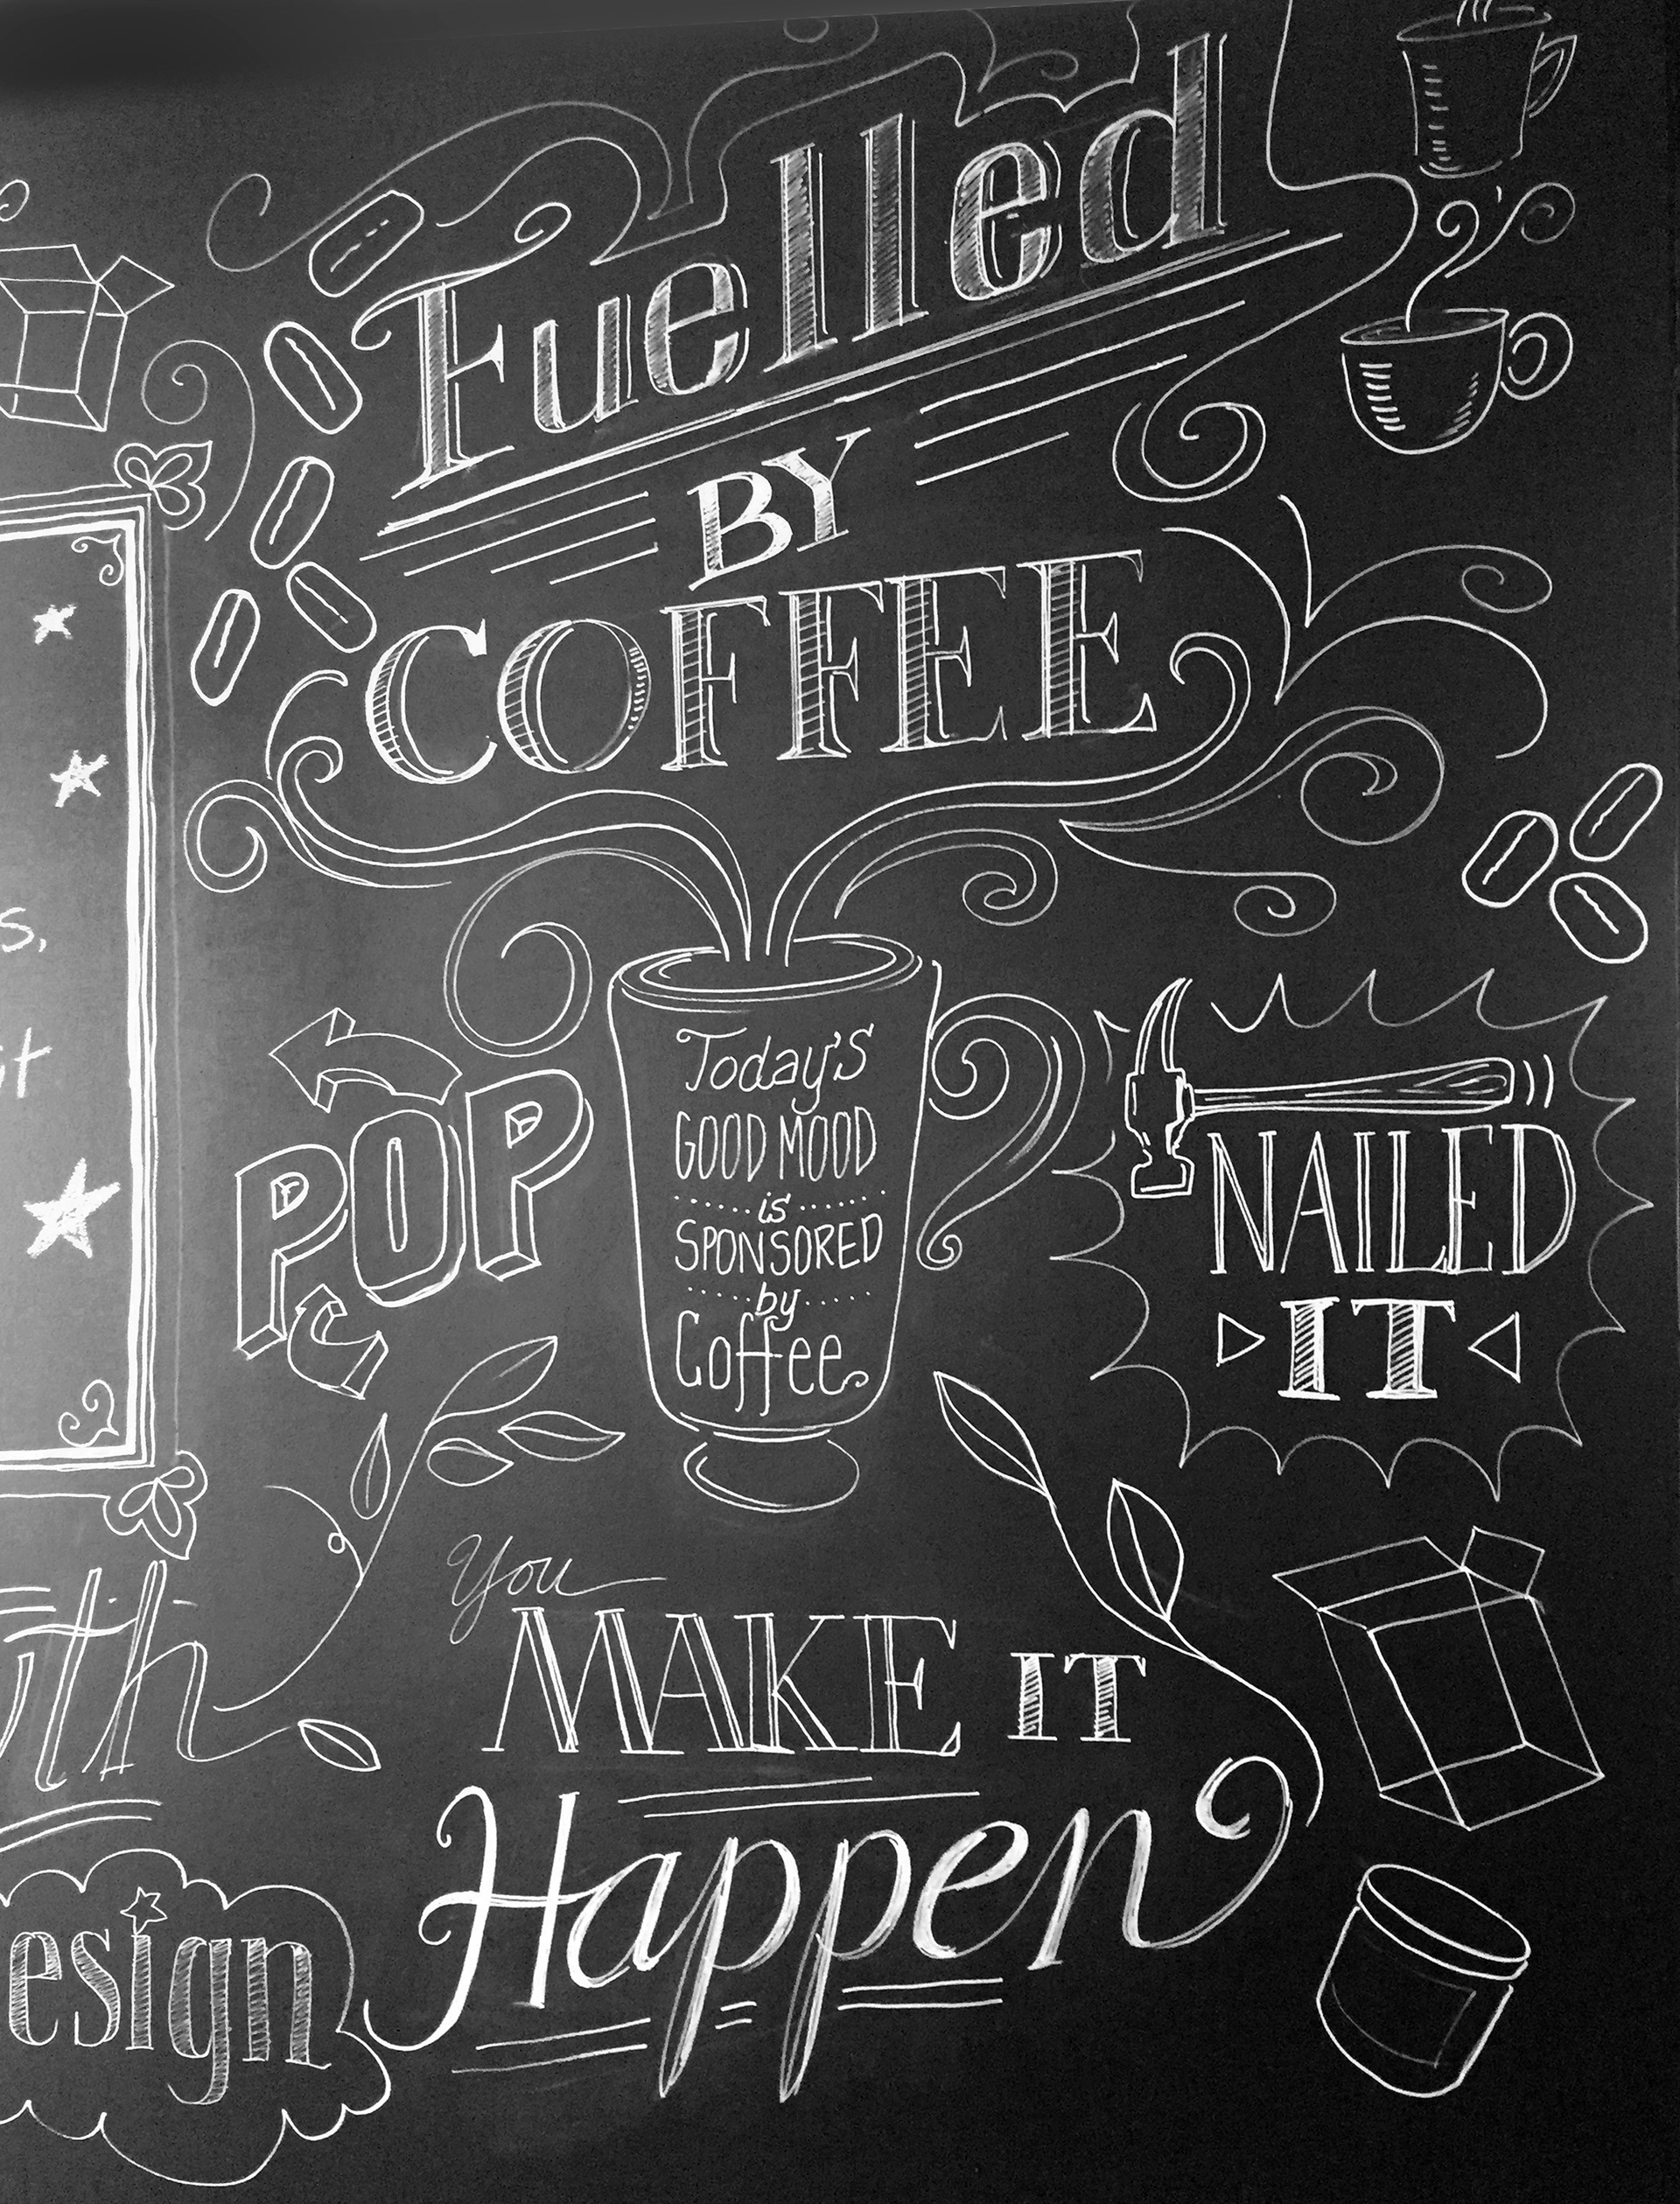 Fuelled
BY
COFFEE
s,
it
POP
Today's
GOOD MOOD
is
SPONSORED
by
Coffee.
NAILED
IT
You
MAKE IT
Happen
th
esign